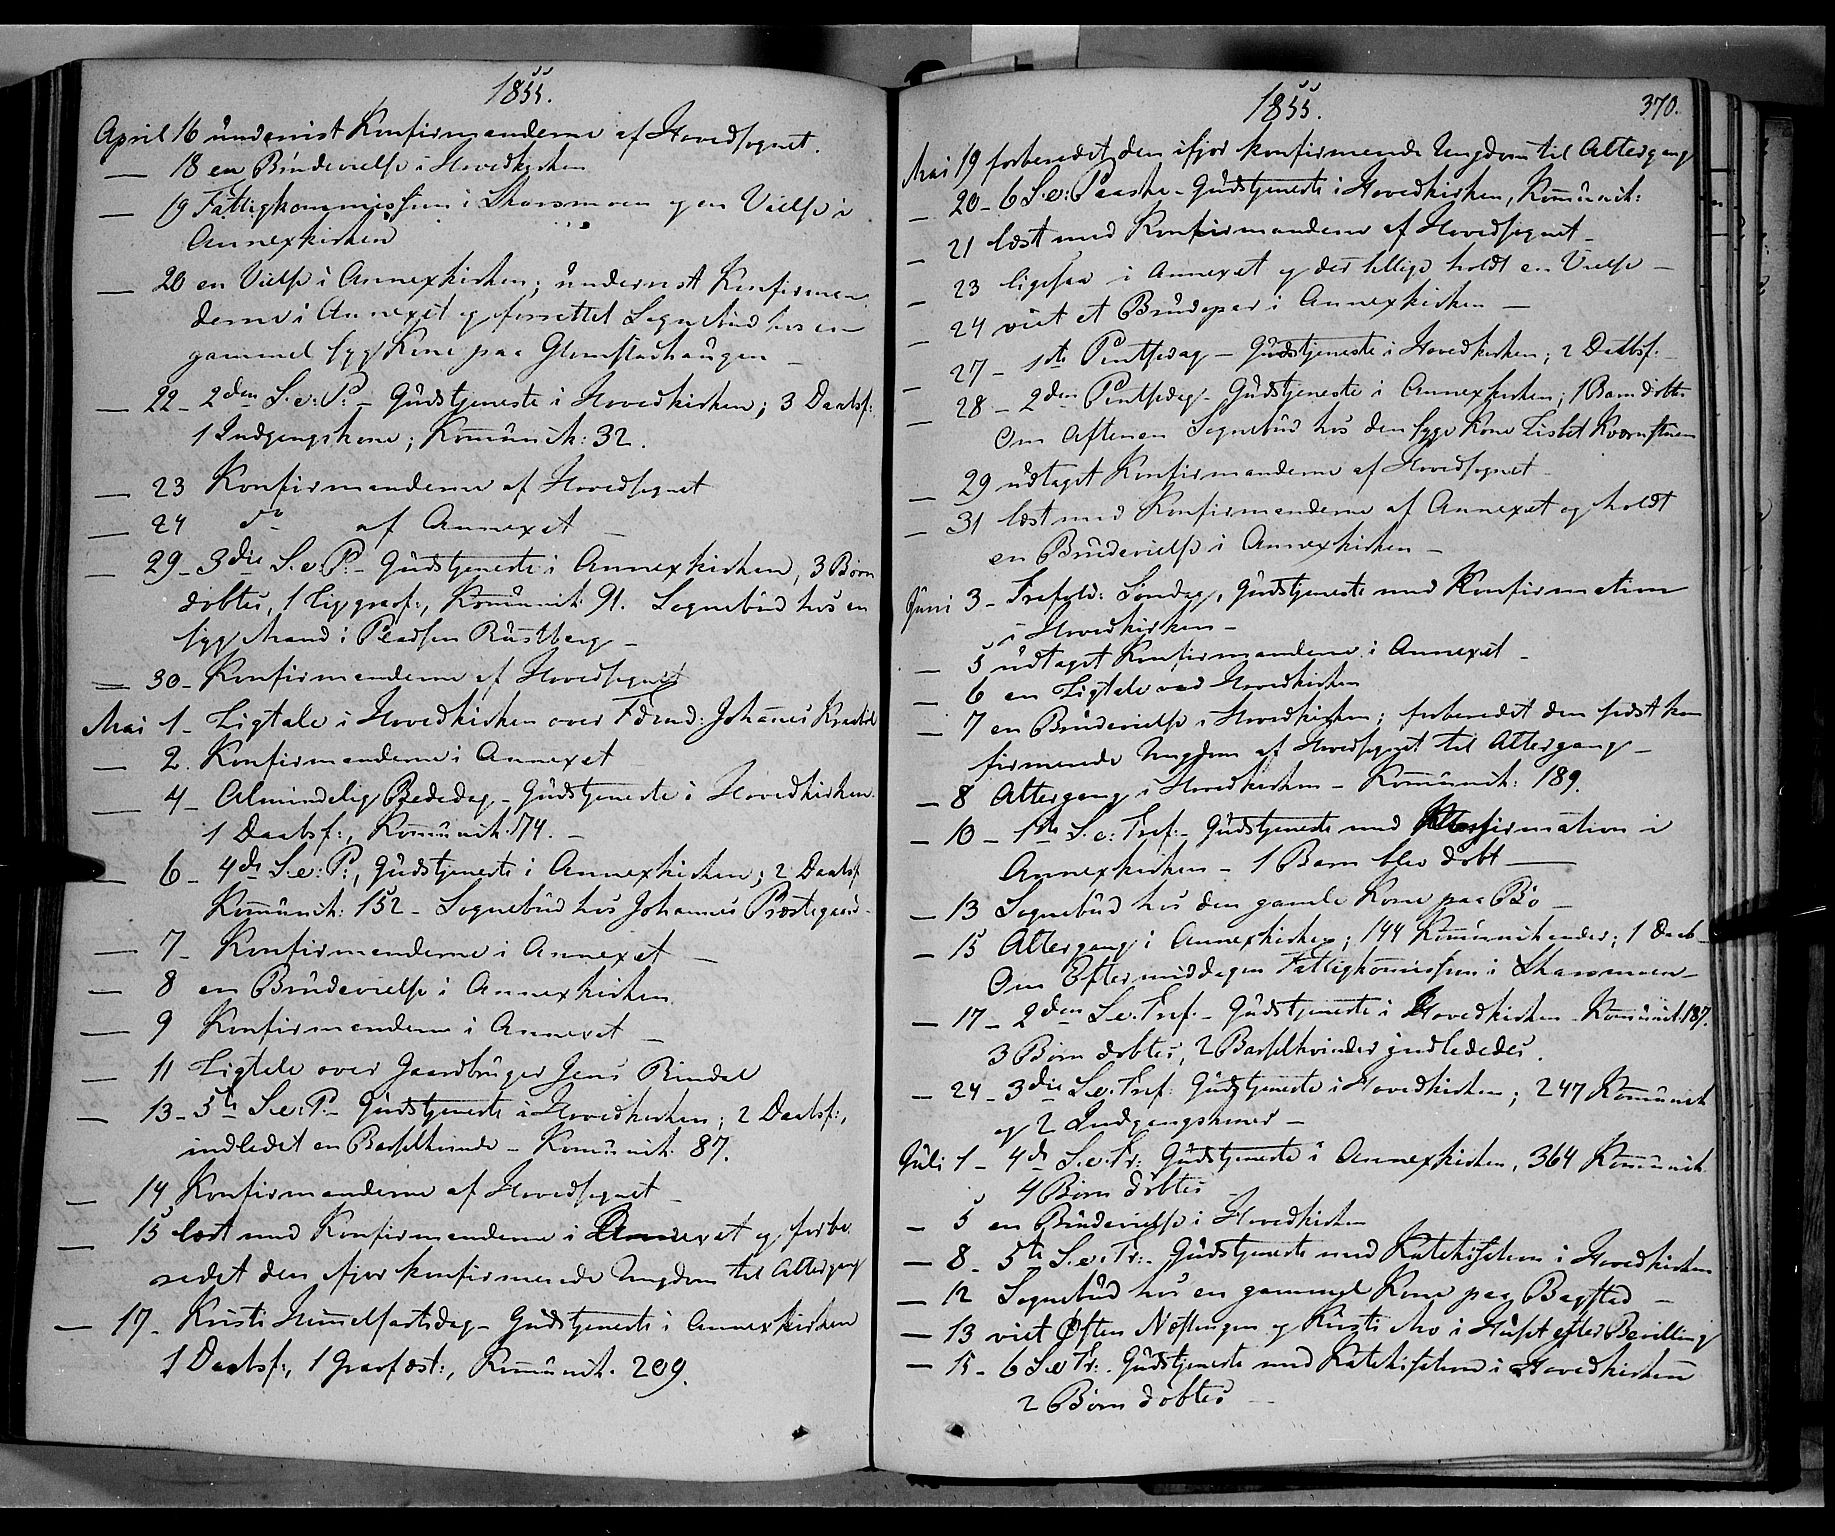 1855.
April 16 underviist Konfirmanderne af Hovedsognet.
— 18 en Brudevielse i Hovedkirken
— 19 Fattigkommission i Skarsmoen og en Vielse i
Annexkirken
— 20 en Vielse i Annexkirken; undervist Konfirman
derne i Annexet og forrettet Sognebud hos en
gammel syg Kone paa Glomstadhaugen —
— 22 - 2den S. e: P: - Gudstjeneste i Hovedkirken; 3 Daabsf:
1 Indgangskone; Kommunik: 32.
— 23 Konfirmanderne af Hovedsognet
— 24 do af Annexet —
— 29 - 3die S. e. P: - Gudstjeneste i Annexkirken, 3 Børn
døbtes, 1 Liggraf:, Kommunik. 91. Sognebud hos en
syg Mand i Pladsen Rustberg —
— 30 - Konfirmanderne af Hovedsognet
Mai 1 - Ligtale i Hovedkirken over Fdrmd: Johannes
— 2. Konfirmanderne i Annexet
— 4 - Almindelig Bededag - Gudstjeneste i Hovedkirken.
1 Daabsf:, Kommunik. 174. -
— 6 - 4de S. e: P:, Gudstjeneste i Annexkirken; 2 Daabsf
Kommunik: 152 - Sognebud hos Johannes Præstegaard -
— 7 - Konfirmanderne i Annexet —
— 8 en Brudevielse i Annexkirken
— 9 Konfirmanderne i Annexet —
— 11 Ligtale over Gaardbruger Jens Rindal
— 13 - 5te S. e: P. - Gudstjeneste i Hovedkirken; 2 Daabsf:,
indledet en Barselkvinde - Kommunik. 87.
— 14 Konfirmanderne af Hovedsognet —
— 15 læst med Konfirmanderne i Annexet og forbe
redet den ifjor konfirmerede Ungdom til Altergang
— 17 - Kristi Himmelfartsdag - Gudstjeneste i Annexkirken
1 Daabsf:, 1 Gravfæst:, Kommunik. 209.
1855.
370.
Mai 19 forberedet den ifjor konfirmerede Ungdom til Altergang
— 20 - 6 S. e: Paaske - Gudstjeneste i Hovedkirken, Kommunik:
— 21 læst med Konfirmanderne af Hovedsognet -
— 23 ligesaa i Annexet og desligge holdt en Vielse —
— 24 viet et Brudepar i Annexkirken —
— 27 - 1ste Pintsedag - Gudstjeneste i Hovedkirken; 2 Daabsf. -
— 28 - 2den Pintsedag - Gudstjeneste i Annexkirken; 1 Barn døbtes
Om Aftenen Sognebud hos den syge Kone Lisbet Kværnstuen
— 29 udtaget Konfirmanderne af Hovedsognet -
— 31 læst med Konfirmanderne af Annexet og holdt
en Brudevielse i Annexkirken —
Juni 3 - Trefold: Søndag, Gudstjeneste med Konfirmation
i Hovedkirken -
— 5 udtaget Konfirmanderne i Annexet -
— 6 en Ligtale ved Hovedkirken
— 7 en Brudevielse i Hovedkirken; forberedet den sidst kon
firmerede Ungdom af Hovedsognet til Altergang -
— 8 Altergang i Hovedkirken - Kommunik: 189.
— 10 - 1ste S. e: Tref: - Gudstjeneste med Konfirmation i
Annexkirken - 1 Barn blev døbt —
— 13 Sognebud hos den gamle Kone paa Bø —
— 15 Altergang i Annexkirken; 144 Kommunikander; 1 Daab -
Om Eftermiddagen Fattigkommission i Skarsmoen -
— 17 - 2den S. e. Tref. - Gudstjeneste i Hovedkirken - Kommunik. 187.
3 Børn døbtes, 2 Barselkvinder indlededes.
— 24 - 3die S. e. Tref: Gudstjeneste i Hovedkirken; 247 Kommunik
og 2 Indgangskoner -
Juli 1 - 4de S. e. Tr: Gudstjeneste i Annexkirken, 364 Kommunik.
4 Børn døbtes
— 5 en Brudevielse i Hovedkirken
— 8 - 5te S. e. Tr: - Gudstjeneste med Katekisation i Hovedkirken
— 12 Sognebud hos en gammel Kone paa Bagstad —
— 13 viet Østen Nostengen og Kirsti Mo i Huset efter Bevilling
— 15 - 6 S. e Tr: Gudstjeneste med Katekisation i Hovedkirken
2 Børn døbtes —